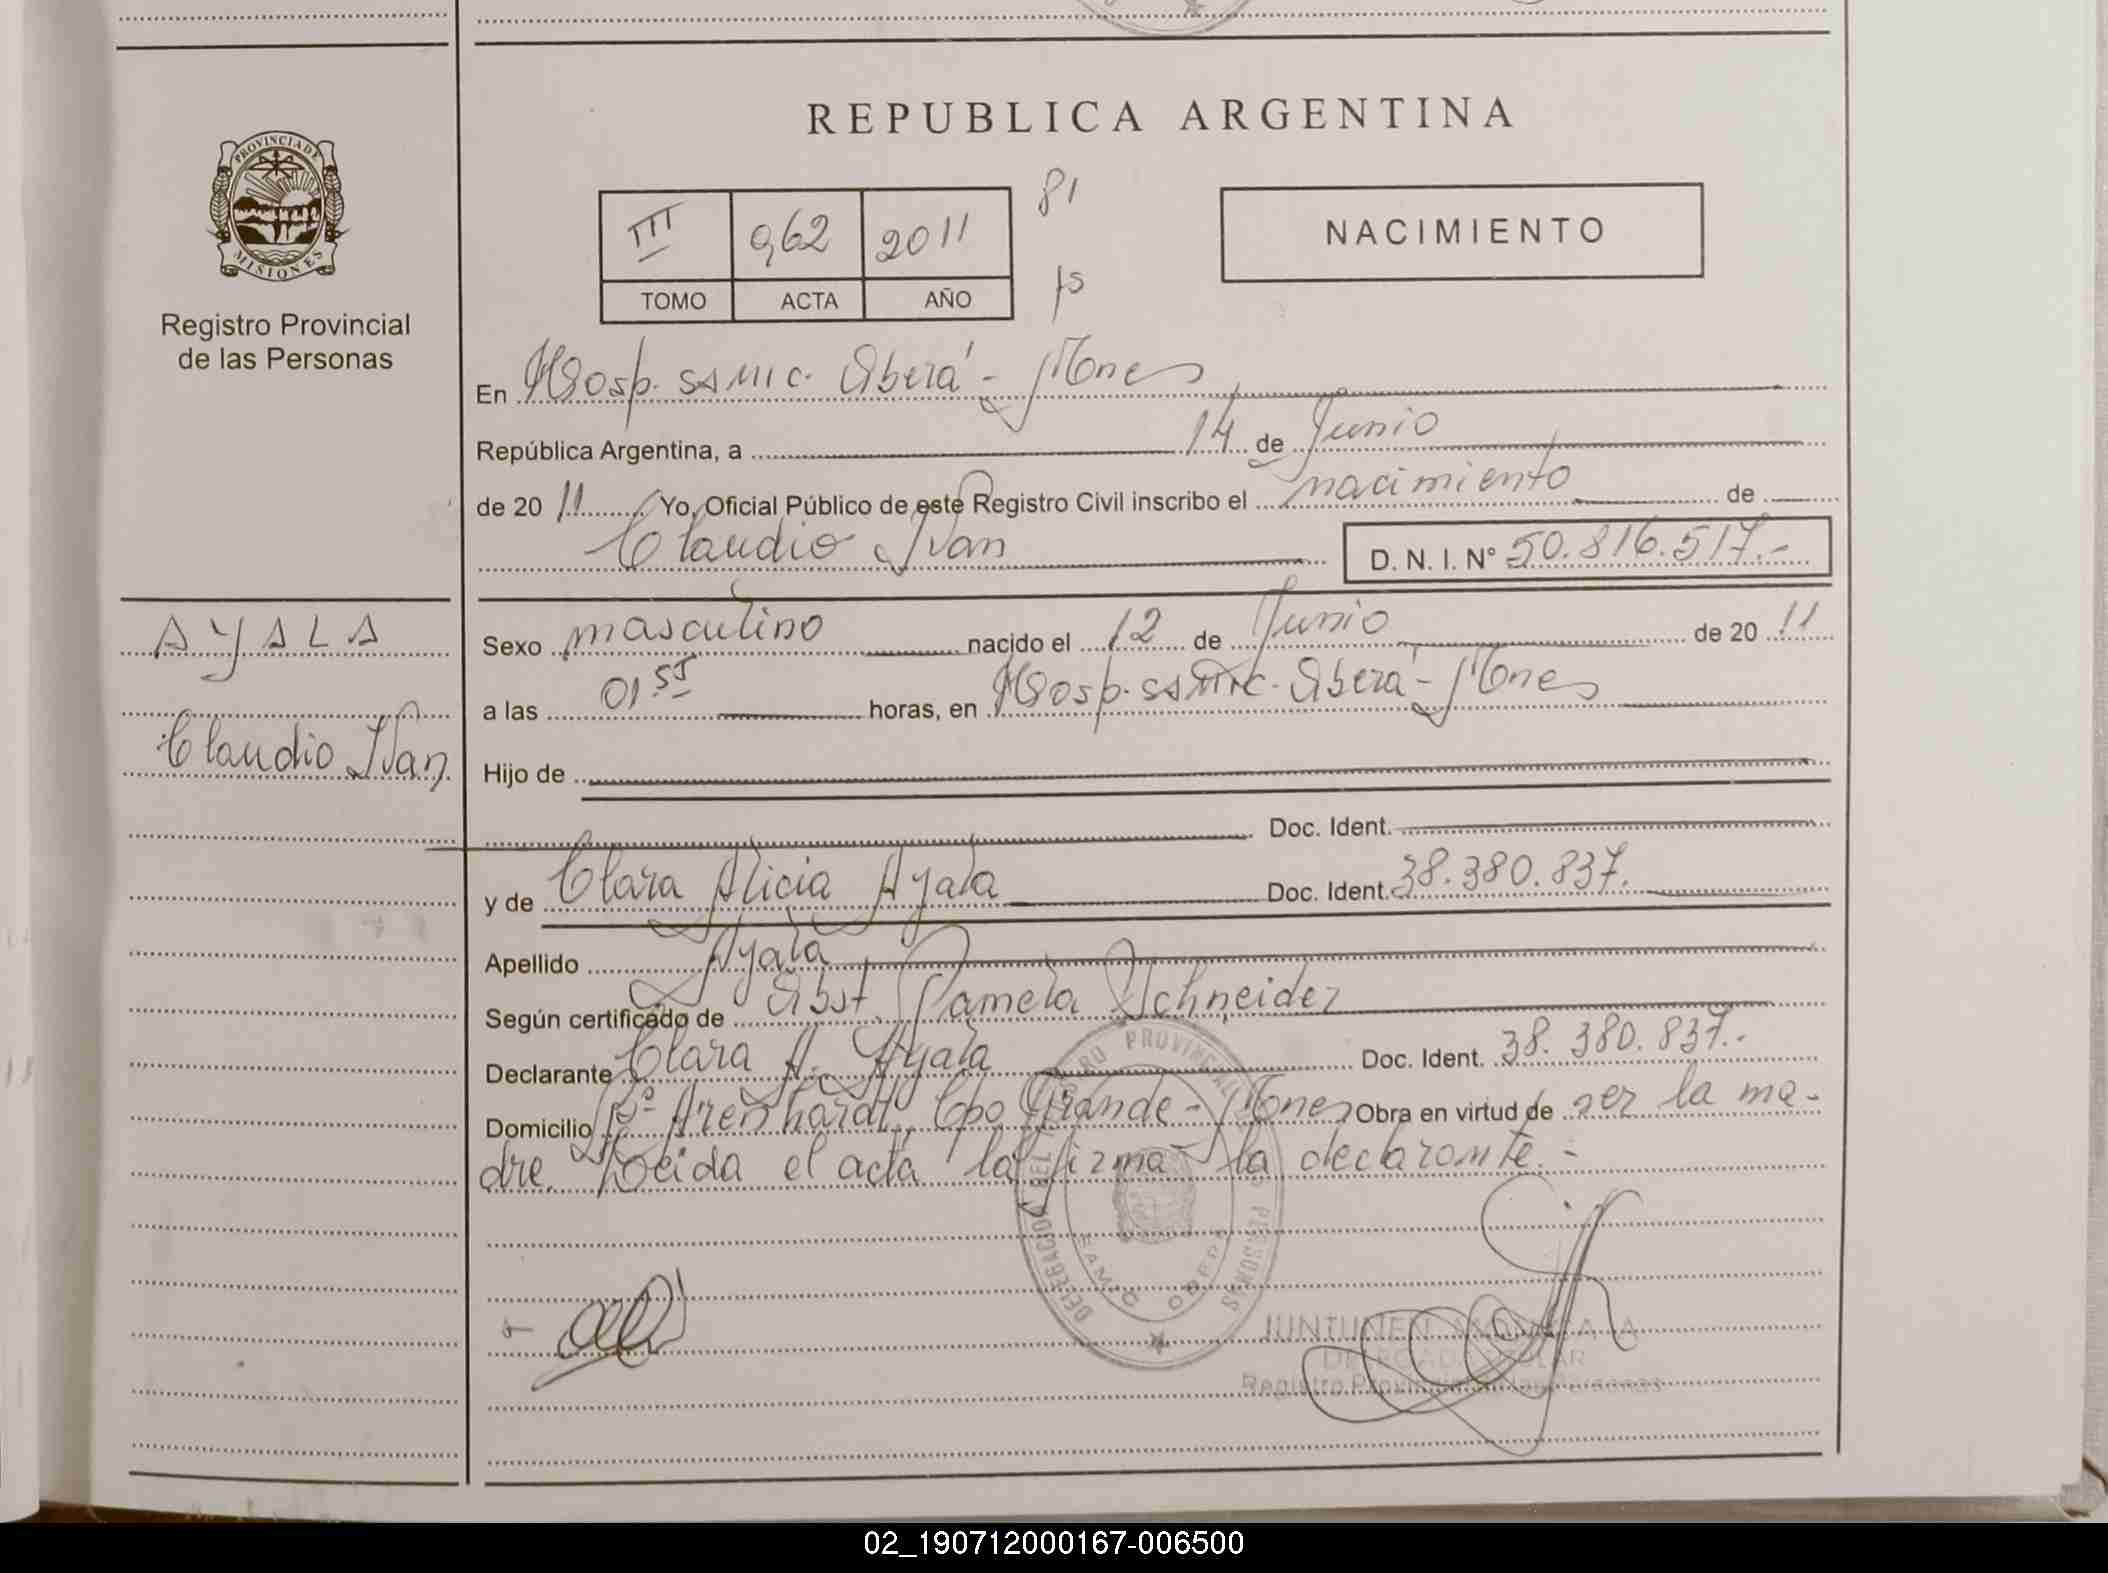 REPUBLICA ARGENTINA
PROVINCIA DE
MISIONES
Registro Provincial
de las Personas
III 962 2011 81
TOMO ACTA AÑO fs
NACIMIENTO
En Hosp. SAMIC. Oberá - Mnes
República Argentina, a 14 de Junio
de 20 11 Yo, Oficial Público de este Registro Civil inscribo el nacimiento de
Claudio Ivan D. N. I. Nº 50.816.517.-
AYALA
Claudio Ivan
Sexo masculino nacido el 12 de Junio de 20 11
a las 01 55 horas, en Hosp. SAMIC. Oberá - Mnes
Hijo de
Doc. Ident.
y de Clara Alicia Ayala Doc. Ident. 38.380.837.
Apellido Ayala
Según certificado de Obst. Pamela Schneider
Declarante Clara A. Ayala Doc. Ident. 38.380.837.-
Domicilio Bº Arenhardt, Cpo Grande - Mnes Obra en virtud de ser la ma-
dre. Leida el acta la firma la declarante.-
DELEGACION DEL REGISTRO PROVINCIAL PERSONAS
SAMIC OBERA
JUNTUNEN, MONICA A
DELEGADA TITULAR
Registro Provincial de las Personas
02_190712000167-006500